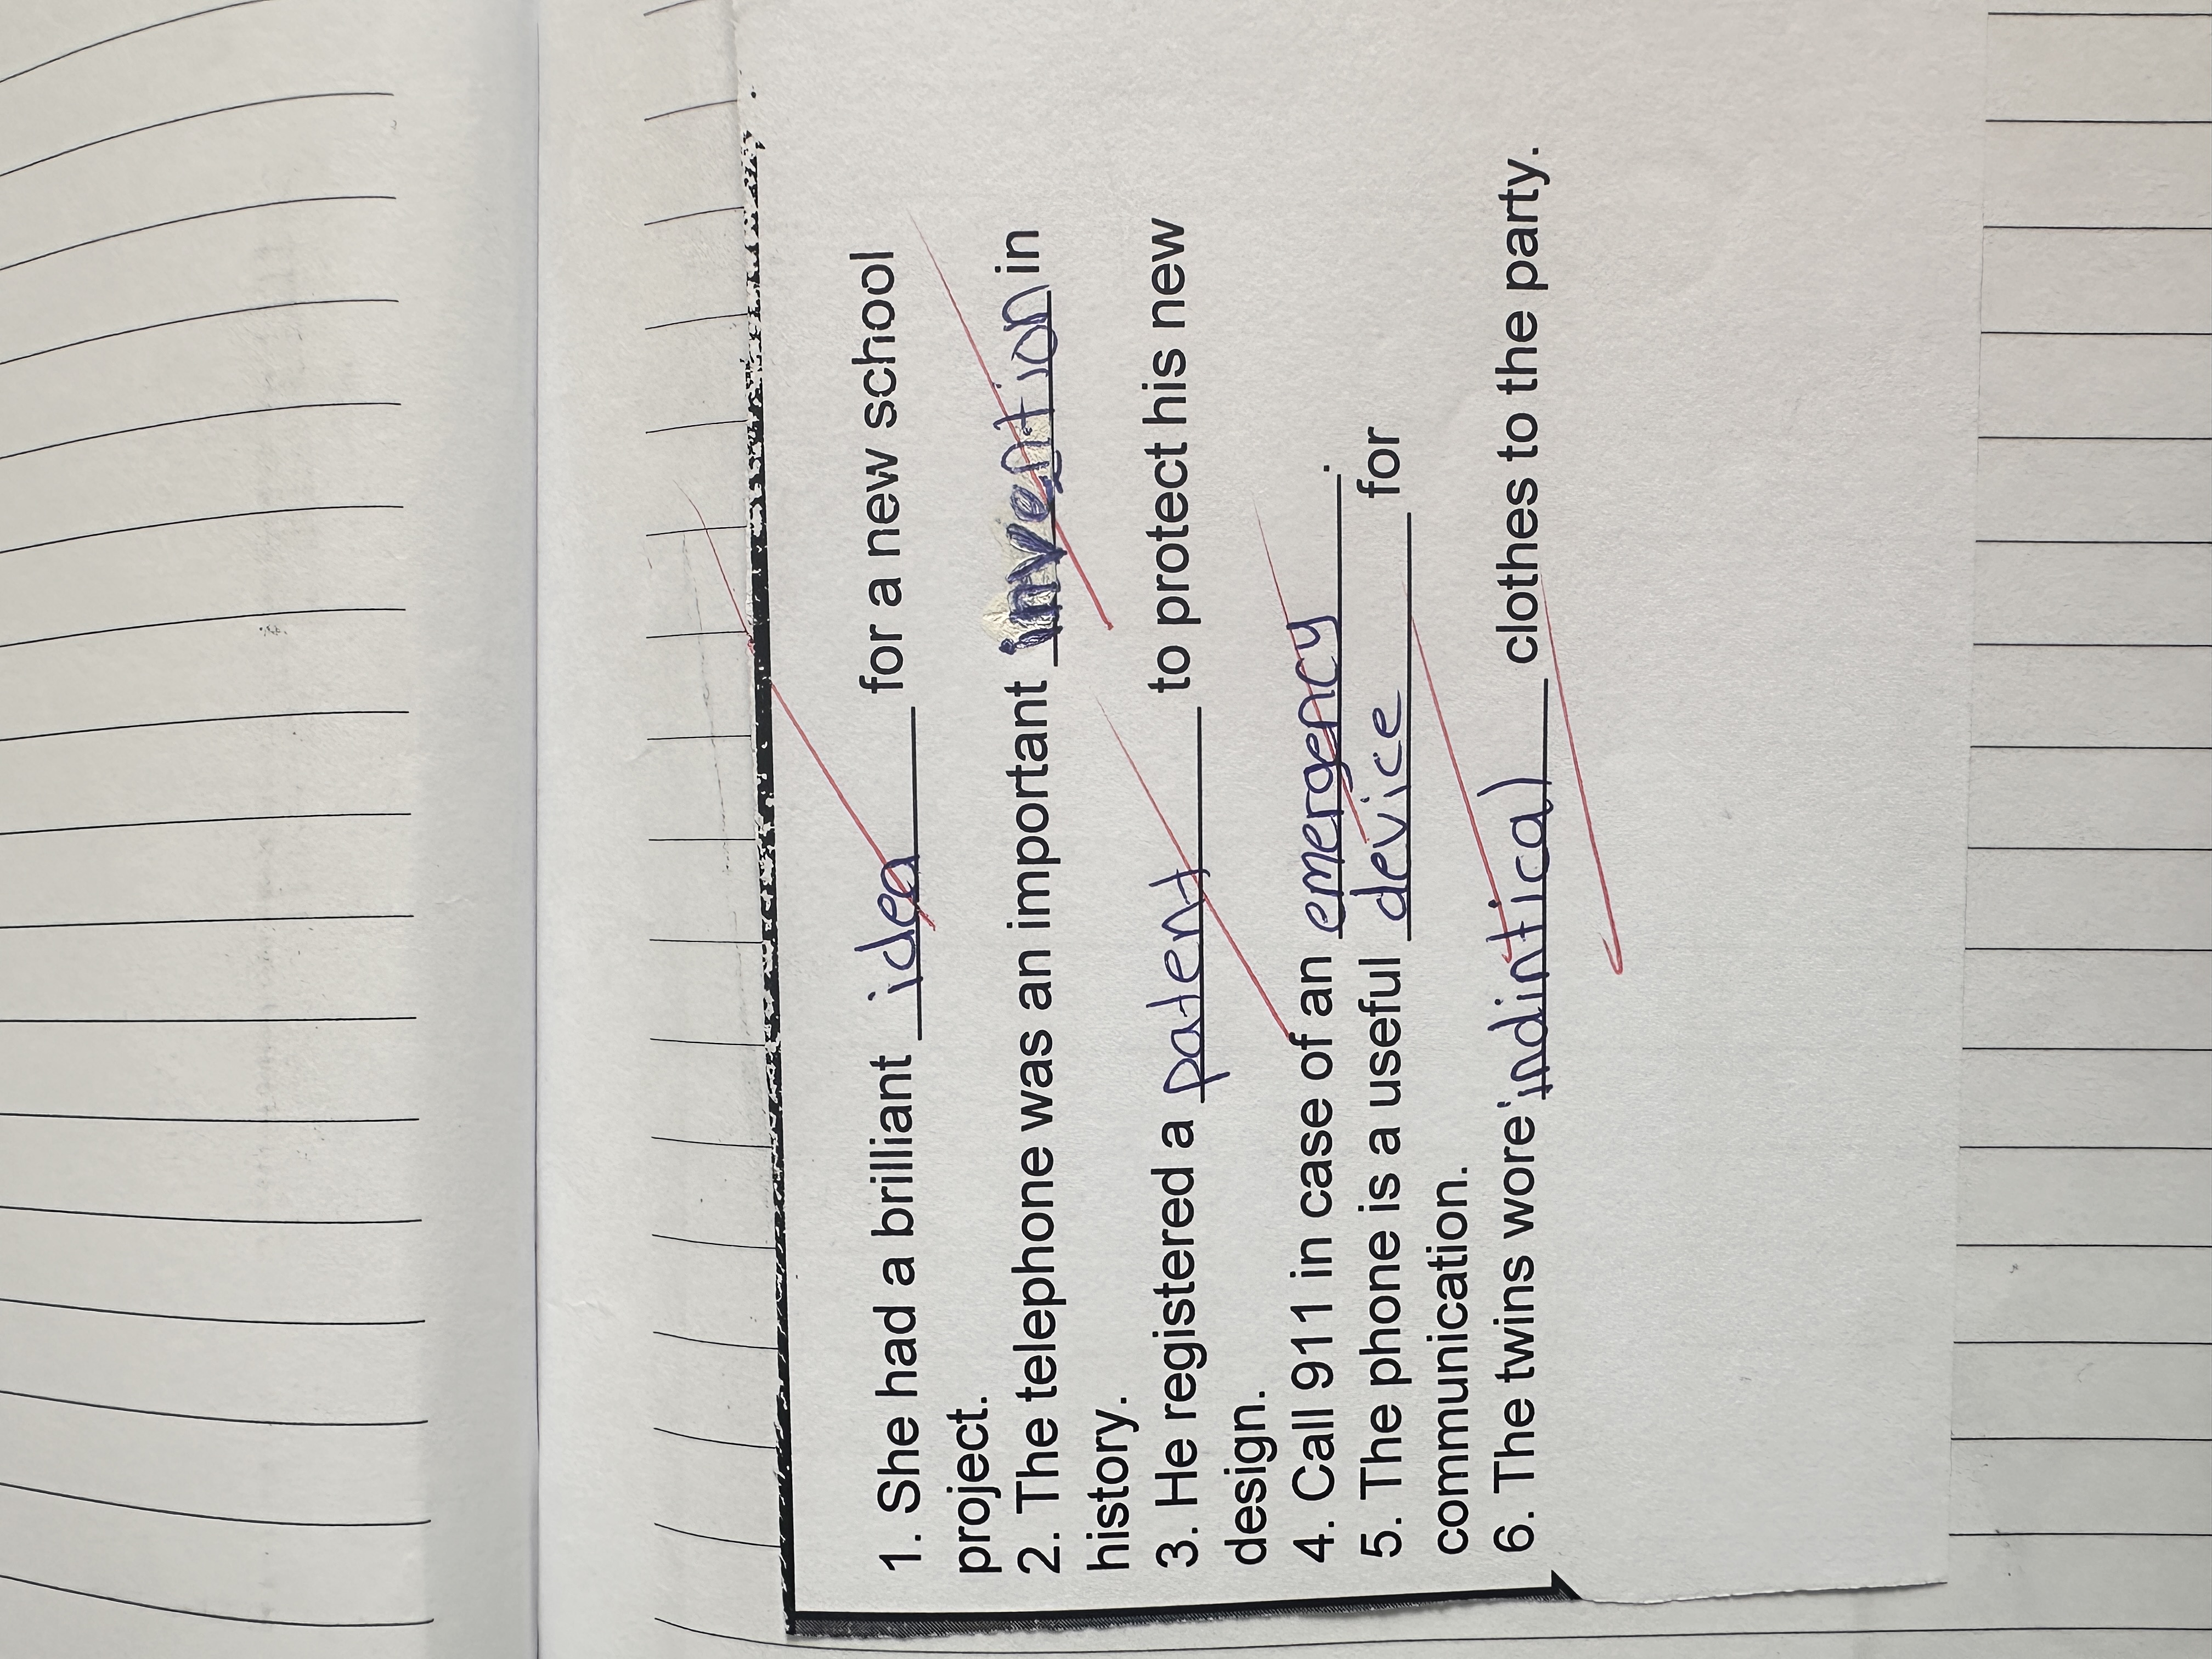 1. She had a brilliant idea for a new school
project.
2. The telephone was an important invention in
history.
3. He registered a patent to protect his new
design.
4. Call 911 in case of an emergency.
5. The phone is a useful device for
communication.
6. The twins wore indintical clothes to the party.